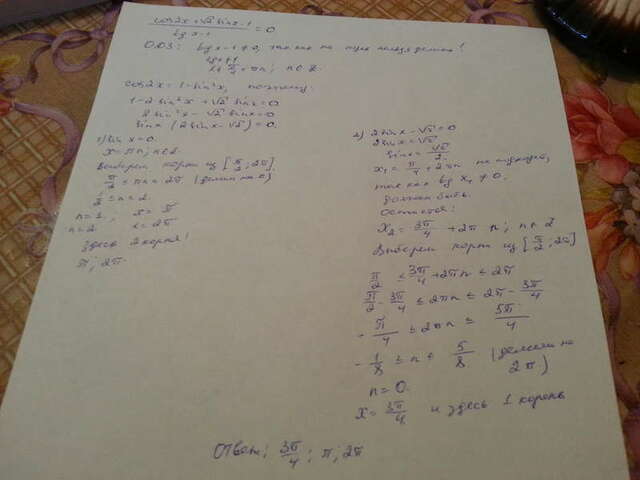 cos2x+√2 sinx-1 / tg x-1 = 0
ОДЗ: tg x-1≠0, так как на нуль нельзя делить!
tg x≠1
x≠ π/4 + πn; n∈Z
cos2x = 1-sin²x, поэтому:
1-2sin²x+√2 sinx=0
2sin²x-√2 sinx=0
sinx (2sinx-√2)=0.
1) sin x=0.
x=πn; n∈Z
Выберем корни из [π/2; 2π]
π/2 ≤ πn ≤ 2π (делим на π)
1/2 ≤ n ≤ 2
n=1, x=π
n=2 x=2π
здесь 2 корня!
π; 2π
2) 2sinx-√2=0
2sinx=√2
sinx= √2/2
x₁= π/4 + 2πn не подходит,
так как tg x, ≠0.
должен быть.
Остаётся:
x₂= 3π/4 + 2πn; n∈Z
Выберем корни из [π/2; 2π]
π/2 ≤ 3π/4 + 2πn ≤ 2π
π/2 - 3π/4 ≤ 2πn ≤ 2π - 3π/4
- π/4 ≤ 2πn ≤ 5π/4
- 1/8 ≤ n ≤ 5/8 (делим на 2π)
n=0.
x= 3π/4 и здесь 1 корень
Ответ: 3π/4; π; 2π